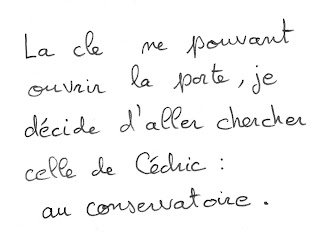 La cle ne pouvant
ouvrir la porte, je
décide d'aller chercher
celle de Cédric :
au conservatoire.